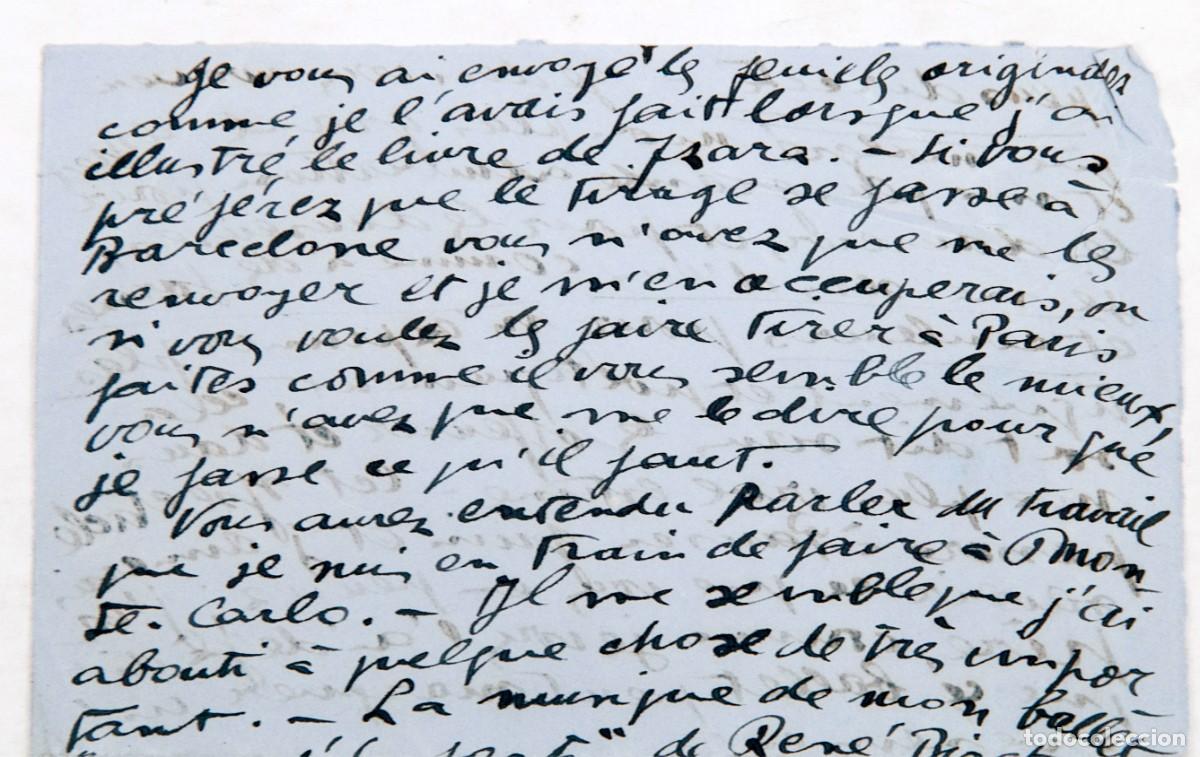 Je vous ai envoyé les feuilles originales
comme je l'avais fait lorsque j'ai
illustré le livre de Tzara. — Si vous
préférez que le tirage se fasse à
Barcelone vous n'avez que me les
renvoyer et je m'en occuperais, ou
si vous voulez les faire tirer à Paris
faites comme il vous semble le mieux,
vous n'avez que me le dire pour que
je fasse ce qu'il faut.
Vous aurez entendu parler du travail
que je suis en train de faire à Mon-
te. Carlo. — Il me semble que j'ai
abouti à quelque chose de très impor
tant. — La musique de mon ballet
" de René
todocoleccion